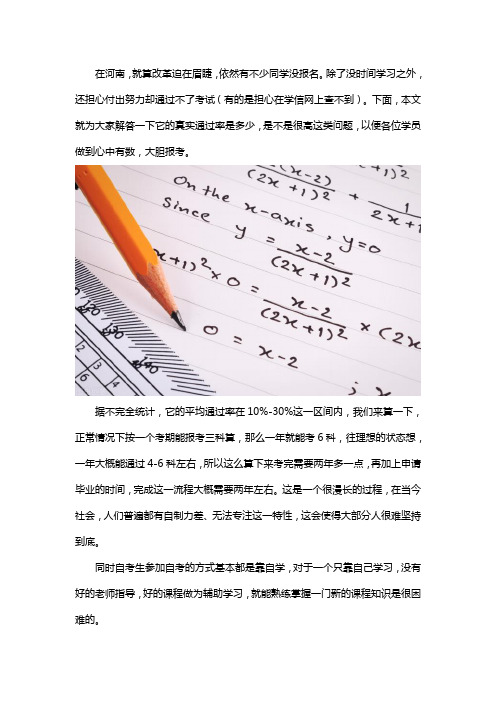 在河南，就算改革迫在眉睫，依然有不少同学没报名。除了没时间学习之外，
还担心付出努力却通过不了考试（有的是担心在学信网上查不到）。下面，本文
就为大家解答一下它的真实通过率是多少，是不是很高这类问题，以便各位学员
做到心中有数，大胆报考。
(x-2)
(2x+1)² + 1
2x+1
On the x-axis, y=0
Since y = x-2
(2x+1)²
x+1)² × 0 = x-2
(2x+1)² × (2x
0 = x-2
据不完全统计，它的平均通过率在 10%-30%这一区间内，我们来算一下，
正常情况下按一个考期能报考三科算，那么一年就能考 6 科，往理想的状态想，
一年大概能通过 4-6 科左右，所以这么算下来考完需要两年多一点，再加上申请
毕业的时间，完成这一流程大概需要两年左右。这是一个很漫长的过程，在当今
社会，人们普遍都有自制力差、无法专注这一特性，这会使得大部分人很难坚持
到底。
同时自考生参加自考的方式基本都是靠自学，对于一个只靠自己学习，没有
好的老师指导，好的课程做为辅助学习，就能熟练掌握一门新的课程知识是很困
难的。